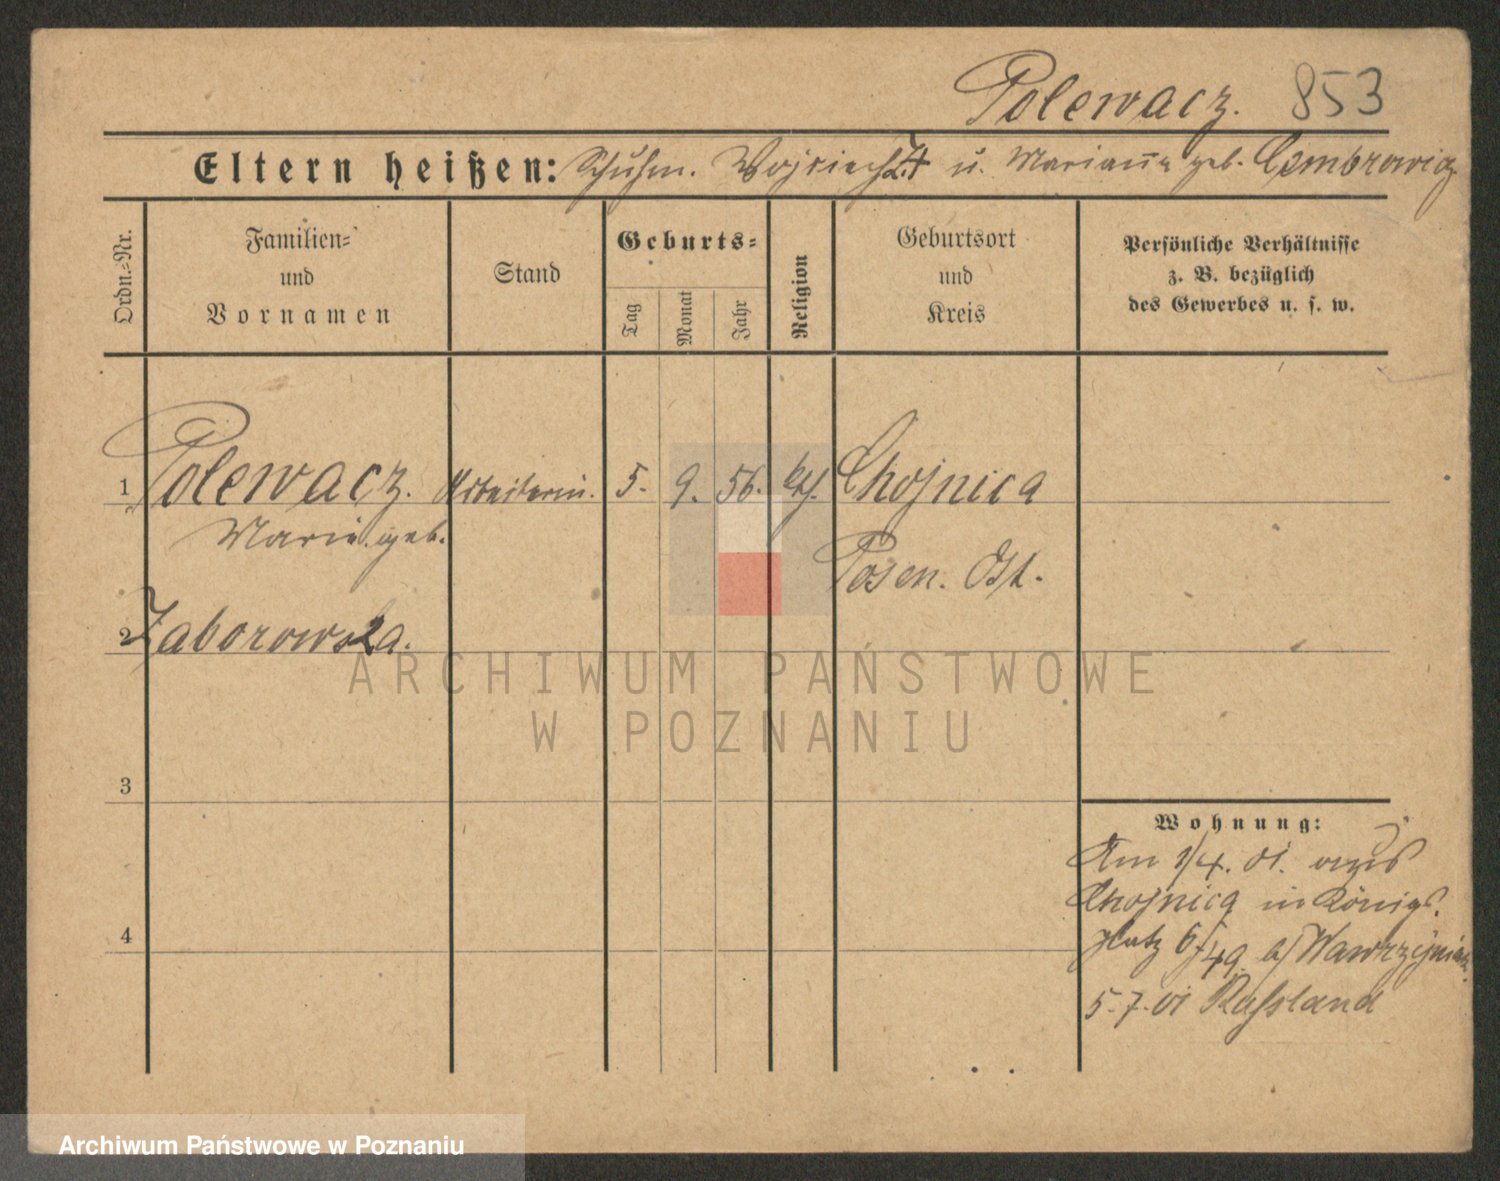 Polewacz. 853
Eltern heißen: Schuhm. Wojciech u. Marianne geb.
Ordn.-Nr.
Familien-
und
Vornamen
Stand
Geburts-
Tag
Monat
Jahr
Religion
Geburtsort
und
Kreis
Persönliche Verhältnisse
z. B. bezüglich
des Gewerbes u. s. w.
1 Polewacz. Arbeiterin. 5. 9. 56. kth. Chojnica
Marie geb. Posen. Ost.
2 Zaborowska.
3
4
Wohnung:
Am 1/4. 01. aus
Chojnica in Königs.
platz 6/49 b/ Wawrzyniak.
5.7.01 Russland
ARCHIWUM PAŃSTWOWE
W POZNANIU
Archiwum Państwowe w Poznaniu